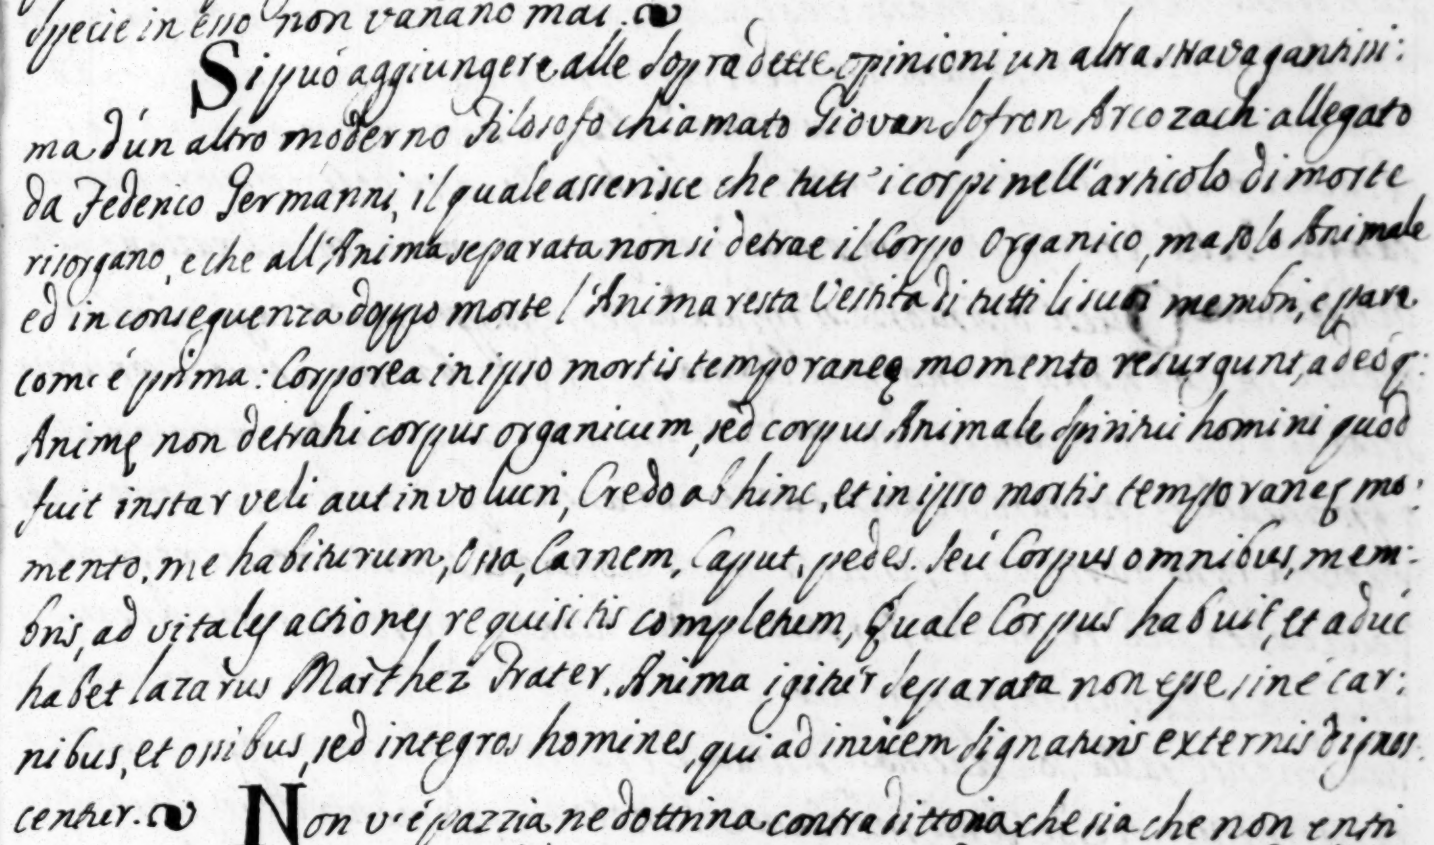 Specie in esso non variano mai.
Si può aggiungere alle sopradette opinioni un altra stravagantissi:
ma d'un altro moderno Filosofo chiamato Giovan Sofron Arcozach allegato
da Federico Germanni, il quale asserisce che tutt' i corpi nell'articolo di morte
risorgano, e che all'Anima separata non si detrae il Corpo Organico, ma solo Animale
ed in conseguenza doppo morte l'Anima resta Vestita di tutti li suoi membri, e pare
com'é prima: Corporea in ipso mortis temporaneę momento resurgunt, adeó q:
Animę non detrahi corpus organicum, sed corpus Animale spiritui homini quod
fuit instar veli aut involucri, Credo ab hinc, et in ipso mortis temporaneę mo:
mento, me habiturum, Ossa, Carnem, Caput, pedes. seú Corpus omnibus, mem:
bris, ad vitales actiones requisitis completum, Quale Corpus habuit, et aduc
habet lazarus Marthez Frater. Anima igitur separata non esse, siné car:
nibus, et ossibus, sed integros homines, qui ad invicem signaturis externis dignos:
centur. Non v'é pazzia, ne dottrina contradittoria, che sia che non entri